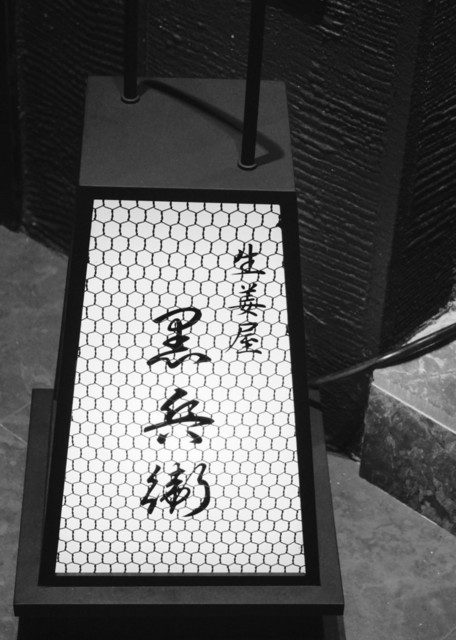 生姜屋
黒兵衛